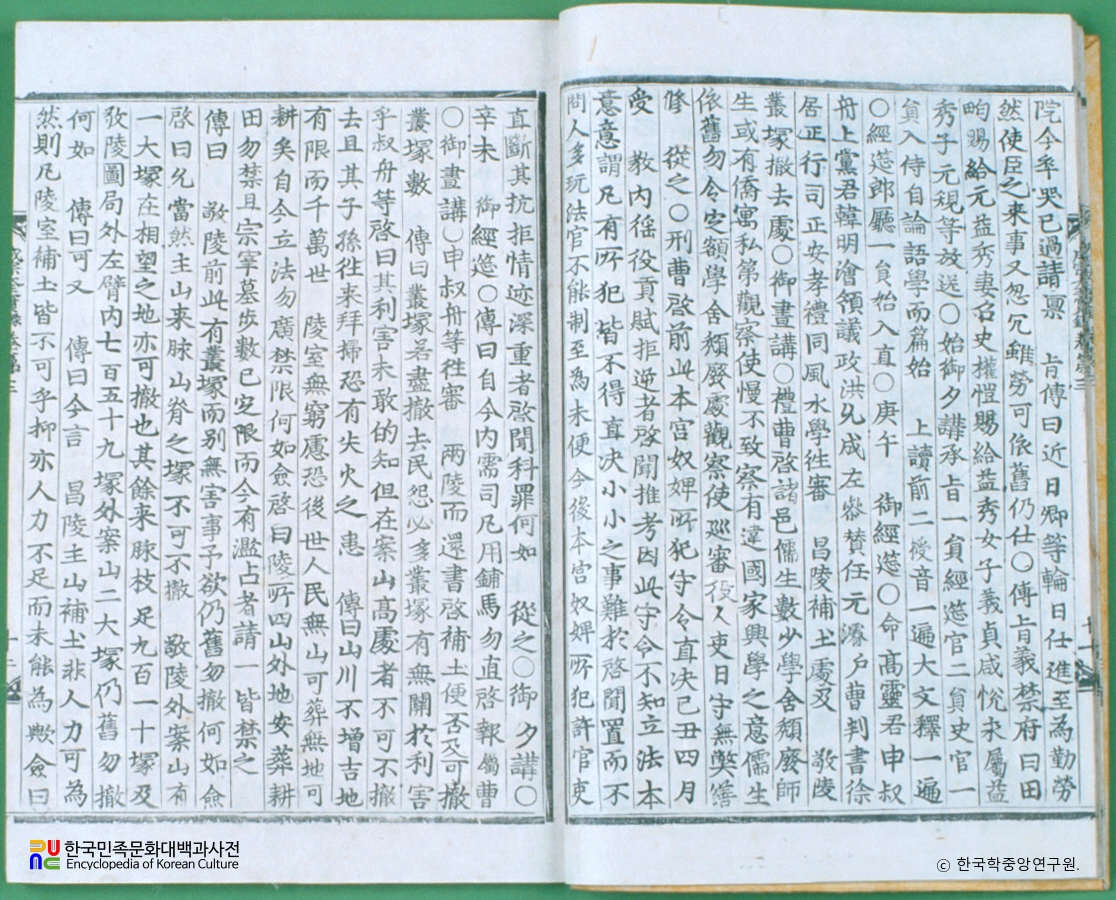 院今牟哭已過請禀 旨傳曰近日卿等輪日仕進至為勤勞
然使臣之来事又忽冗雖勞可依舊仍仕○傳旨義禁府曰田
畇賜給元益秀妻召史權愷賜給益秀女子義貞咸悅来屬益
秀子元稅等放送○始御夕講承旨一負經筵官二負史官一
負入侍自論語學而篇始 上讀前二授音一遍大文釋一遍
○經筵郎廳一負始入直○庚午 御經筵○命髙靈君申叔
舟上黨君韓明澮領議政洪允成左叅賛任元濬戶曹判書徐
居正行司正安孝禮同風水學徃審 昌陵補土處及 敬陵
叢塚撤去處○御晝講○禮曹啓諸邑儒生數少學舍頹廢師
生或有僑寓私第觀察使慢不致察有違國家興學之意儒生
依舊勿令定額學舍頹廢處觀察使巡審役人吏日守無弊繕
修 從之○刑曹啓前此本宮奴婢所犯守令直决己丑四月
受 教内徭役貢賦拒逆者啓聞推考因此守令不知立法本
意意謂凡有所犯皆不得直决小小之事難於啓聞置而不
問人多玩法官不能制至為未便今後本宮奴婢所犯許官吏
直斷其抗拒情迹深重者啓聞科罪何如 從之○御夕講○
辛未 御經筵○傳曰自今内需司凡用鋪馬勿直啓報屬曹
○御晝講○申叔舟等徃審 兩陵而還書啓補土便否及可撤
叢塚數 傳曰叢塚若盡撤去民怨必多叢塚有無關於利害
乎叔舟等啓曰其利害未敢的知但在案山髙處者不可不撤
去且其子孫徃来拜掃恐有失火之患 傳曰山川不増吉地
有限而千萬世 陵室無窮慮恐後世人民無山可葬無地可
耕矣自今立法勿廣禁限何如僉啓曰陵所四山外地安葬耕
田勿禁且宗宰墓步數已定限而今有濫占者請一皆禁之
傳曰 敬陵前此有叢塚而别無害事予欲仍舊勿撤何如僉
啓曰允當然主山来脉山脊之塚不可不撤 敬陵外案山有
一大塚在相望之地亦可撤也其餘来脉枝足九百一十塚及
敬陵圖局外左臂内七百五十九塚外案山二大塚仍舊勿撤
何如 傳曰可又 傳曰今言 昌陵主山補土非人力可為
然則凡陵室補土皆不可乎抑亦人力不足而未能為歟僉曰
한국민족문화대백과사전
Encyclopedia of Korean Culture
© 한국학중앙연구원.